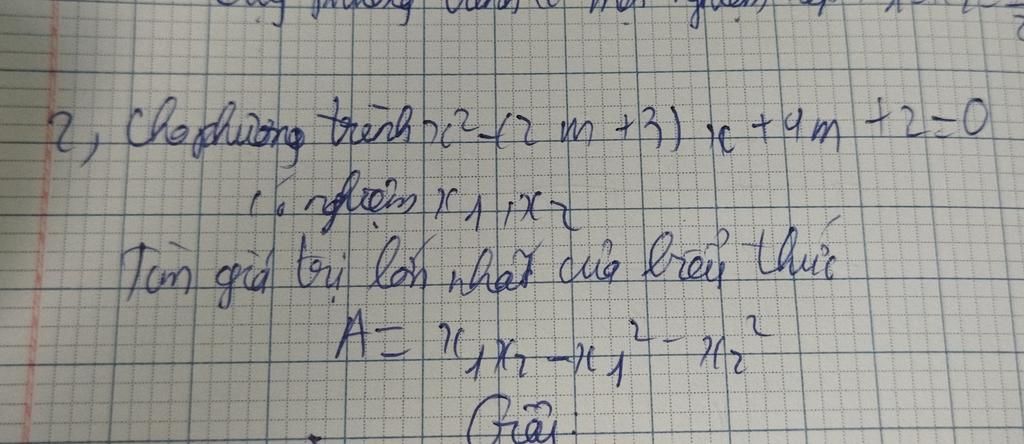 2, Cho phương trình x² - (2m + 3)x + 4m + 2 = 0
có nghiệm x₁, x₂
Tìm giá trị lớn nhất của biểu thức
A = x₁x₂ - x₁² - x₂²
Giải: